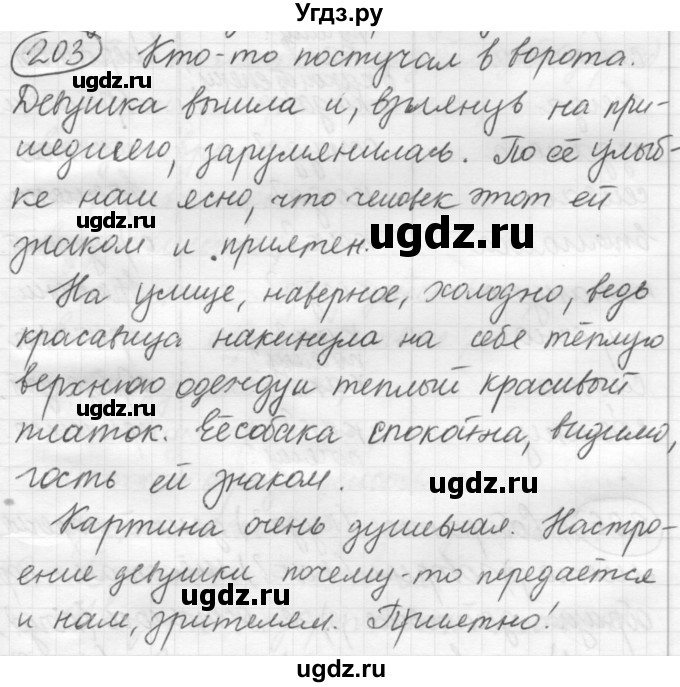 Угдз.ру
203 Кто-то постучал в ворота.
Девушка вышла и, взглянув на при-
шедшего, зарумянилась. По её улыб-
ке нам ясно, что человек этот ей
знаком и приятен.
На улице, наверное, холодно, ведь
красавица накинула на себе тёплую
верхнюю одежду и теплый красивый
платок. Её собака спокойна, видимо,
гость ей знаком.
Картина очень душевная. Настро-
ение девушки почему-то передаётся
и нам, зрителям. Приятно!
ugdz.ru
ugdz.ru
ugdz.ru
ugdz.ru
ugdz.ru
ugdz.ru
ugdz.ru